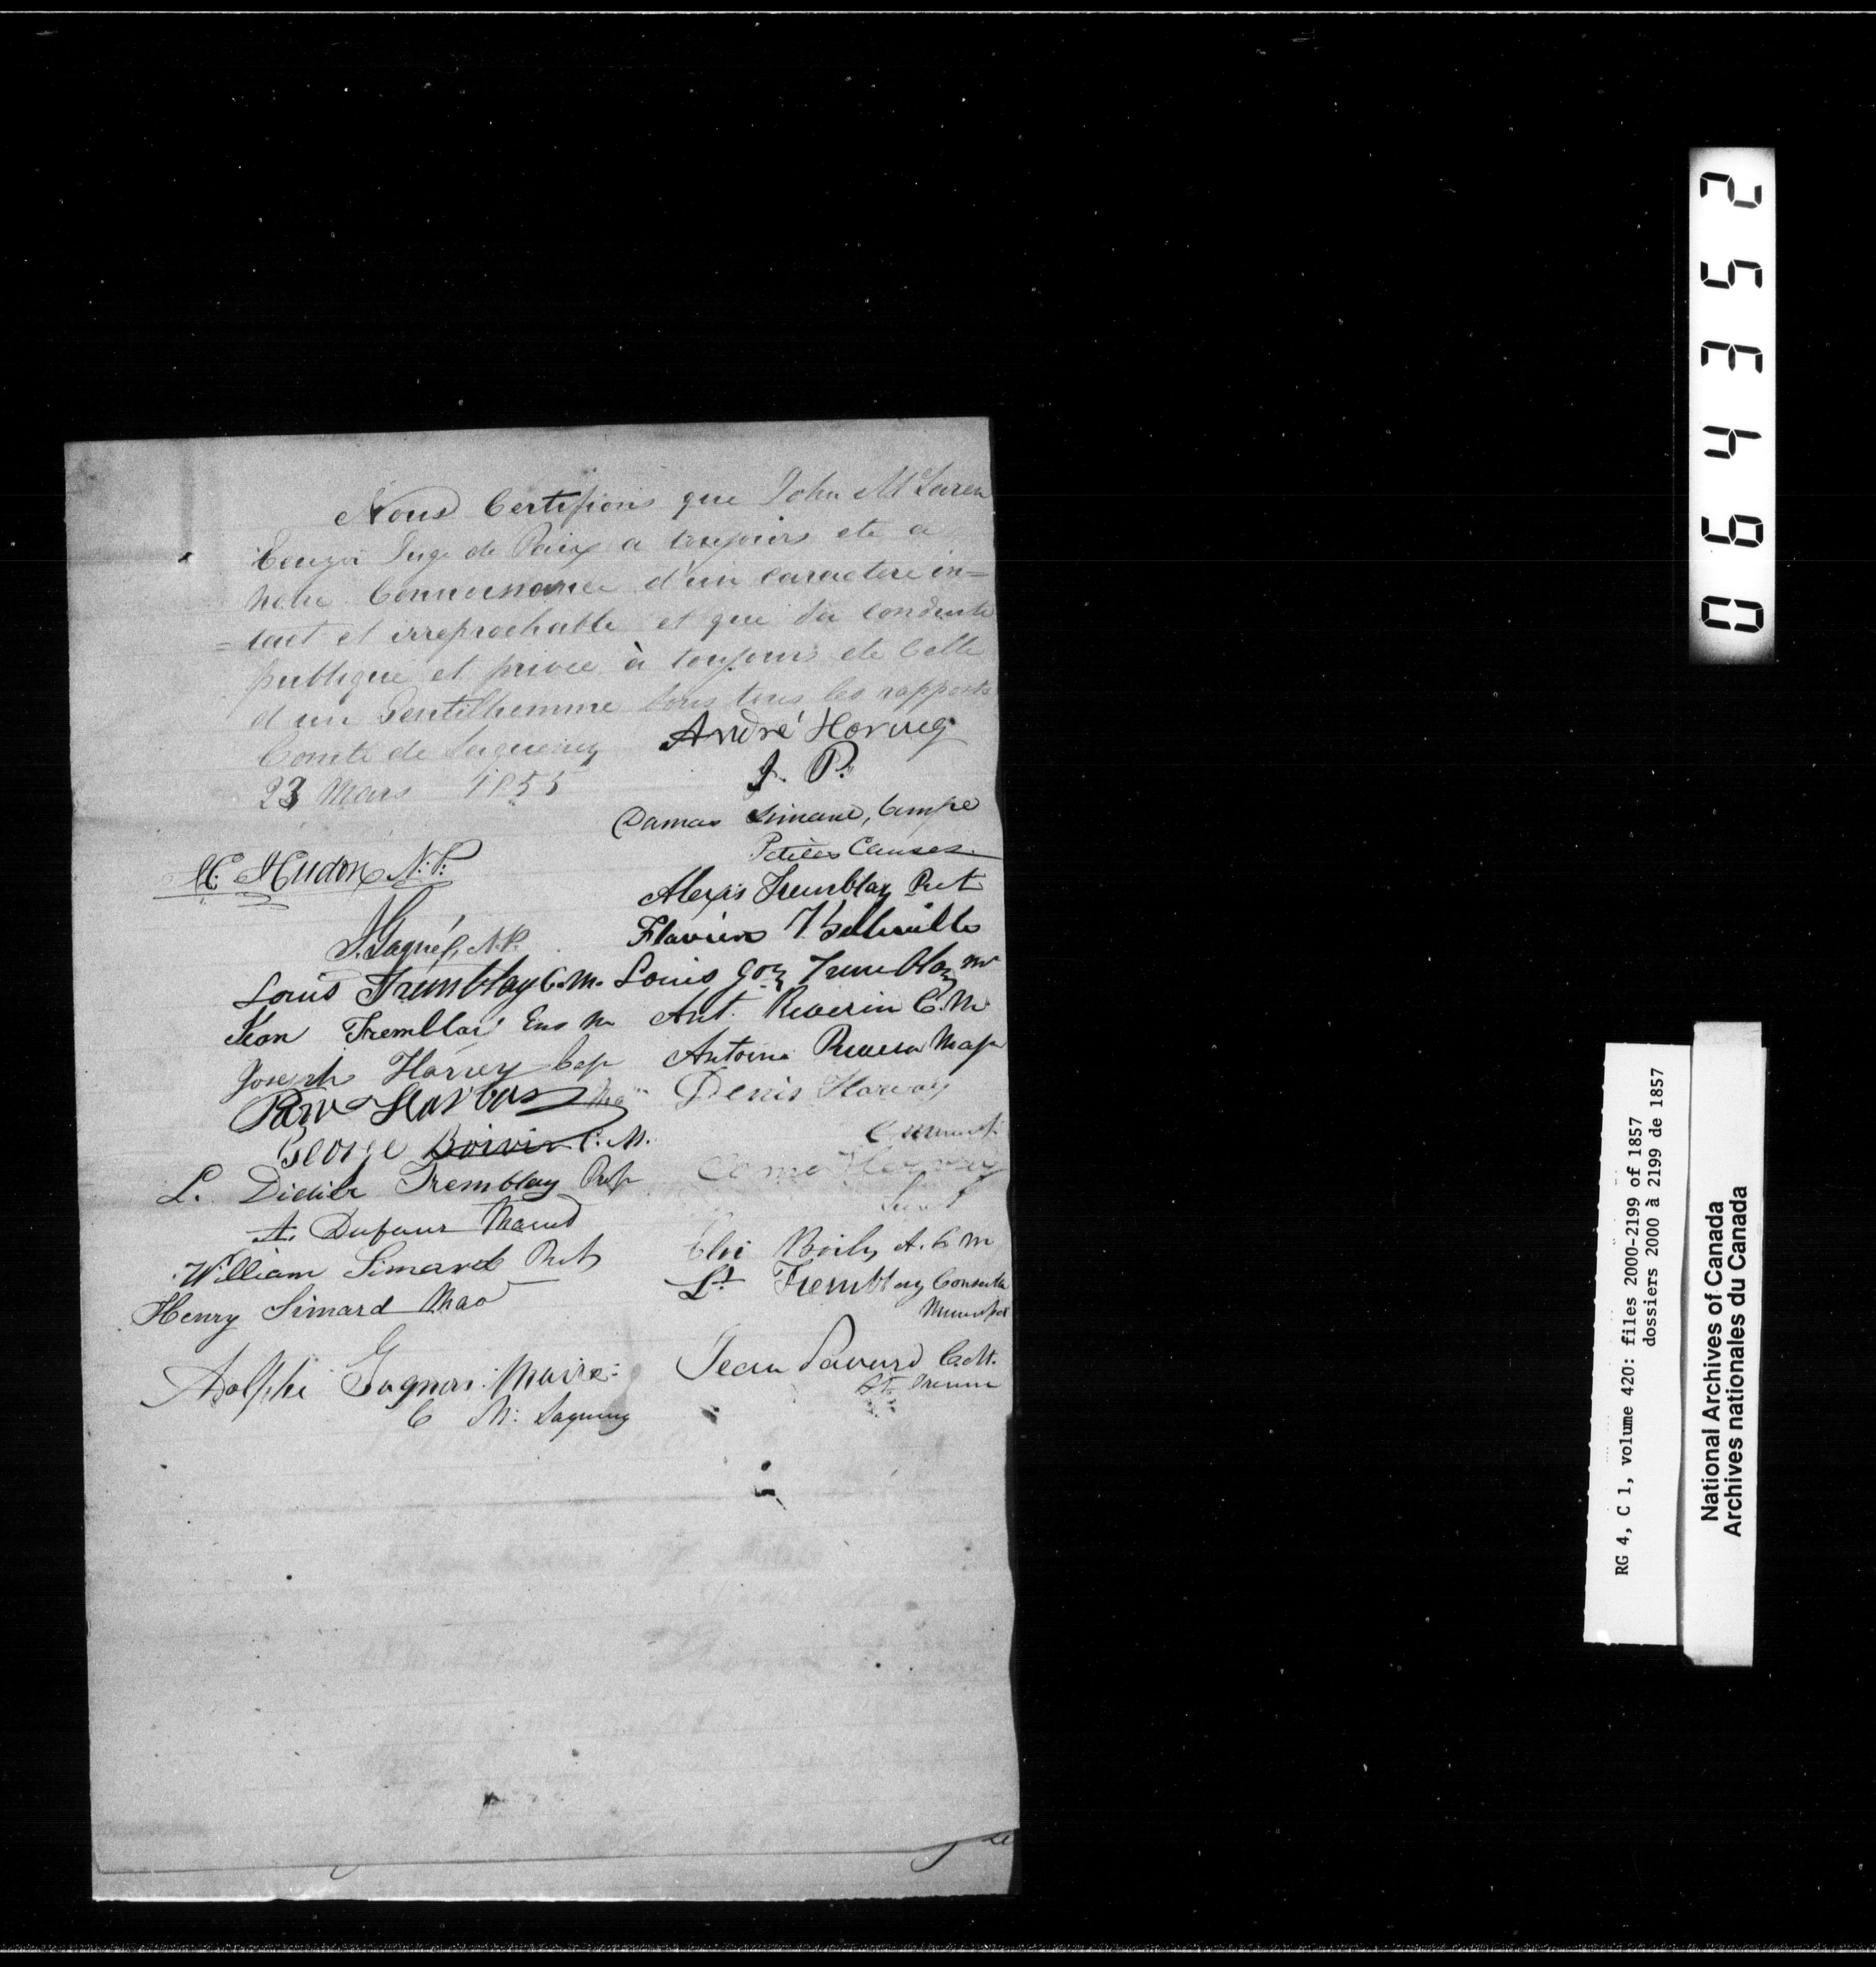 Nous Certifions que John McLaren
Ecuyer Juge de Paix a toujours ete a
notre Connoissance d'un caractere in=
=tact et irreprochable et que sa conduite
publique et privee à toujours ete Celle
d'un Gentilhomme sous tous les rapports
Comté de Saguenay
23 Mars 1855
André Harvey
J. P.
Damas Simard,
Petites Causes
H. Hudon N. P.
Alexis Tremblay Prêt
Flavien
J. Gagné, N.P.
Louis Tremblay C.M. Louis Goz Tremblay
Jean Tremblai Ens M Ant. Riverin C.M
Joseph Harvey Cap Antoine Riverin Majr
Denis Harvey
George Boivin C.M.
L. Didier Tremblay
A. Dufour
William Simard
Eloi Boily
Lt Tremblay
Henry Simard
Jean C.M.
Adolphe Gagnon Maire
C M: Saguenay
064352
RG 4, C 1, volume 420: files 2000-2199 of 1857
dossiers 2000 à 2199 de 1857
National Archives of Canada
Archives nationales du Canada